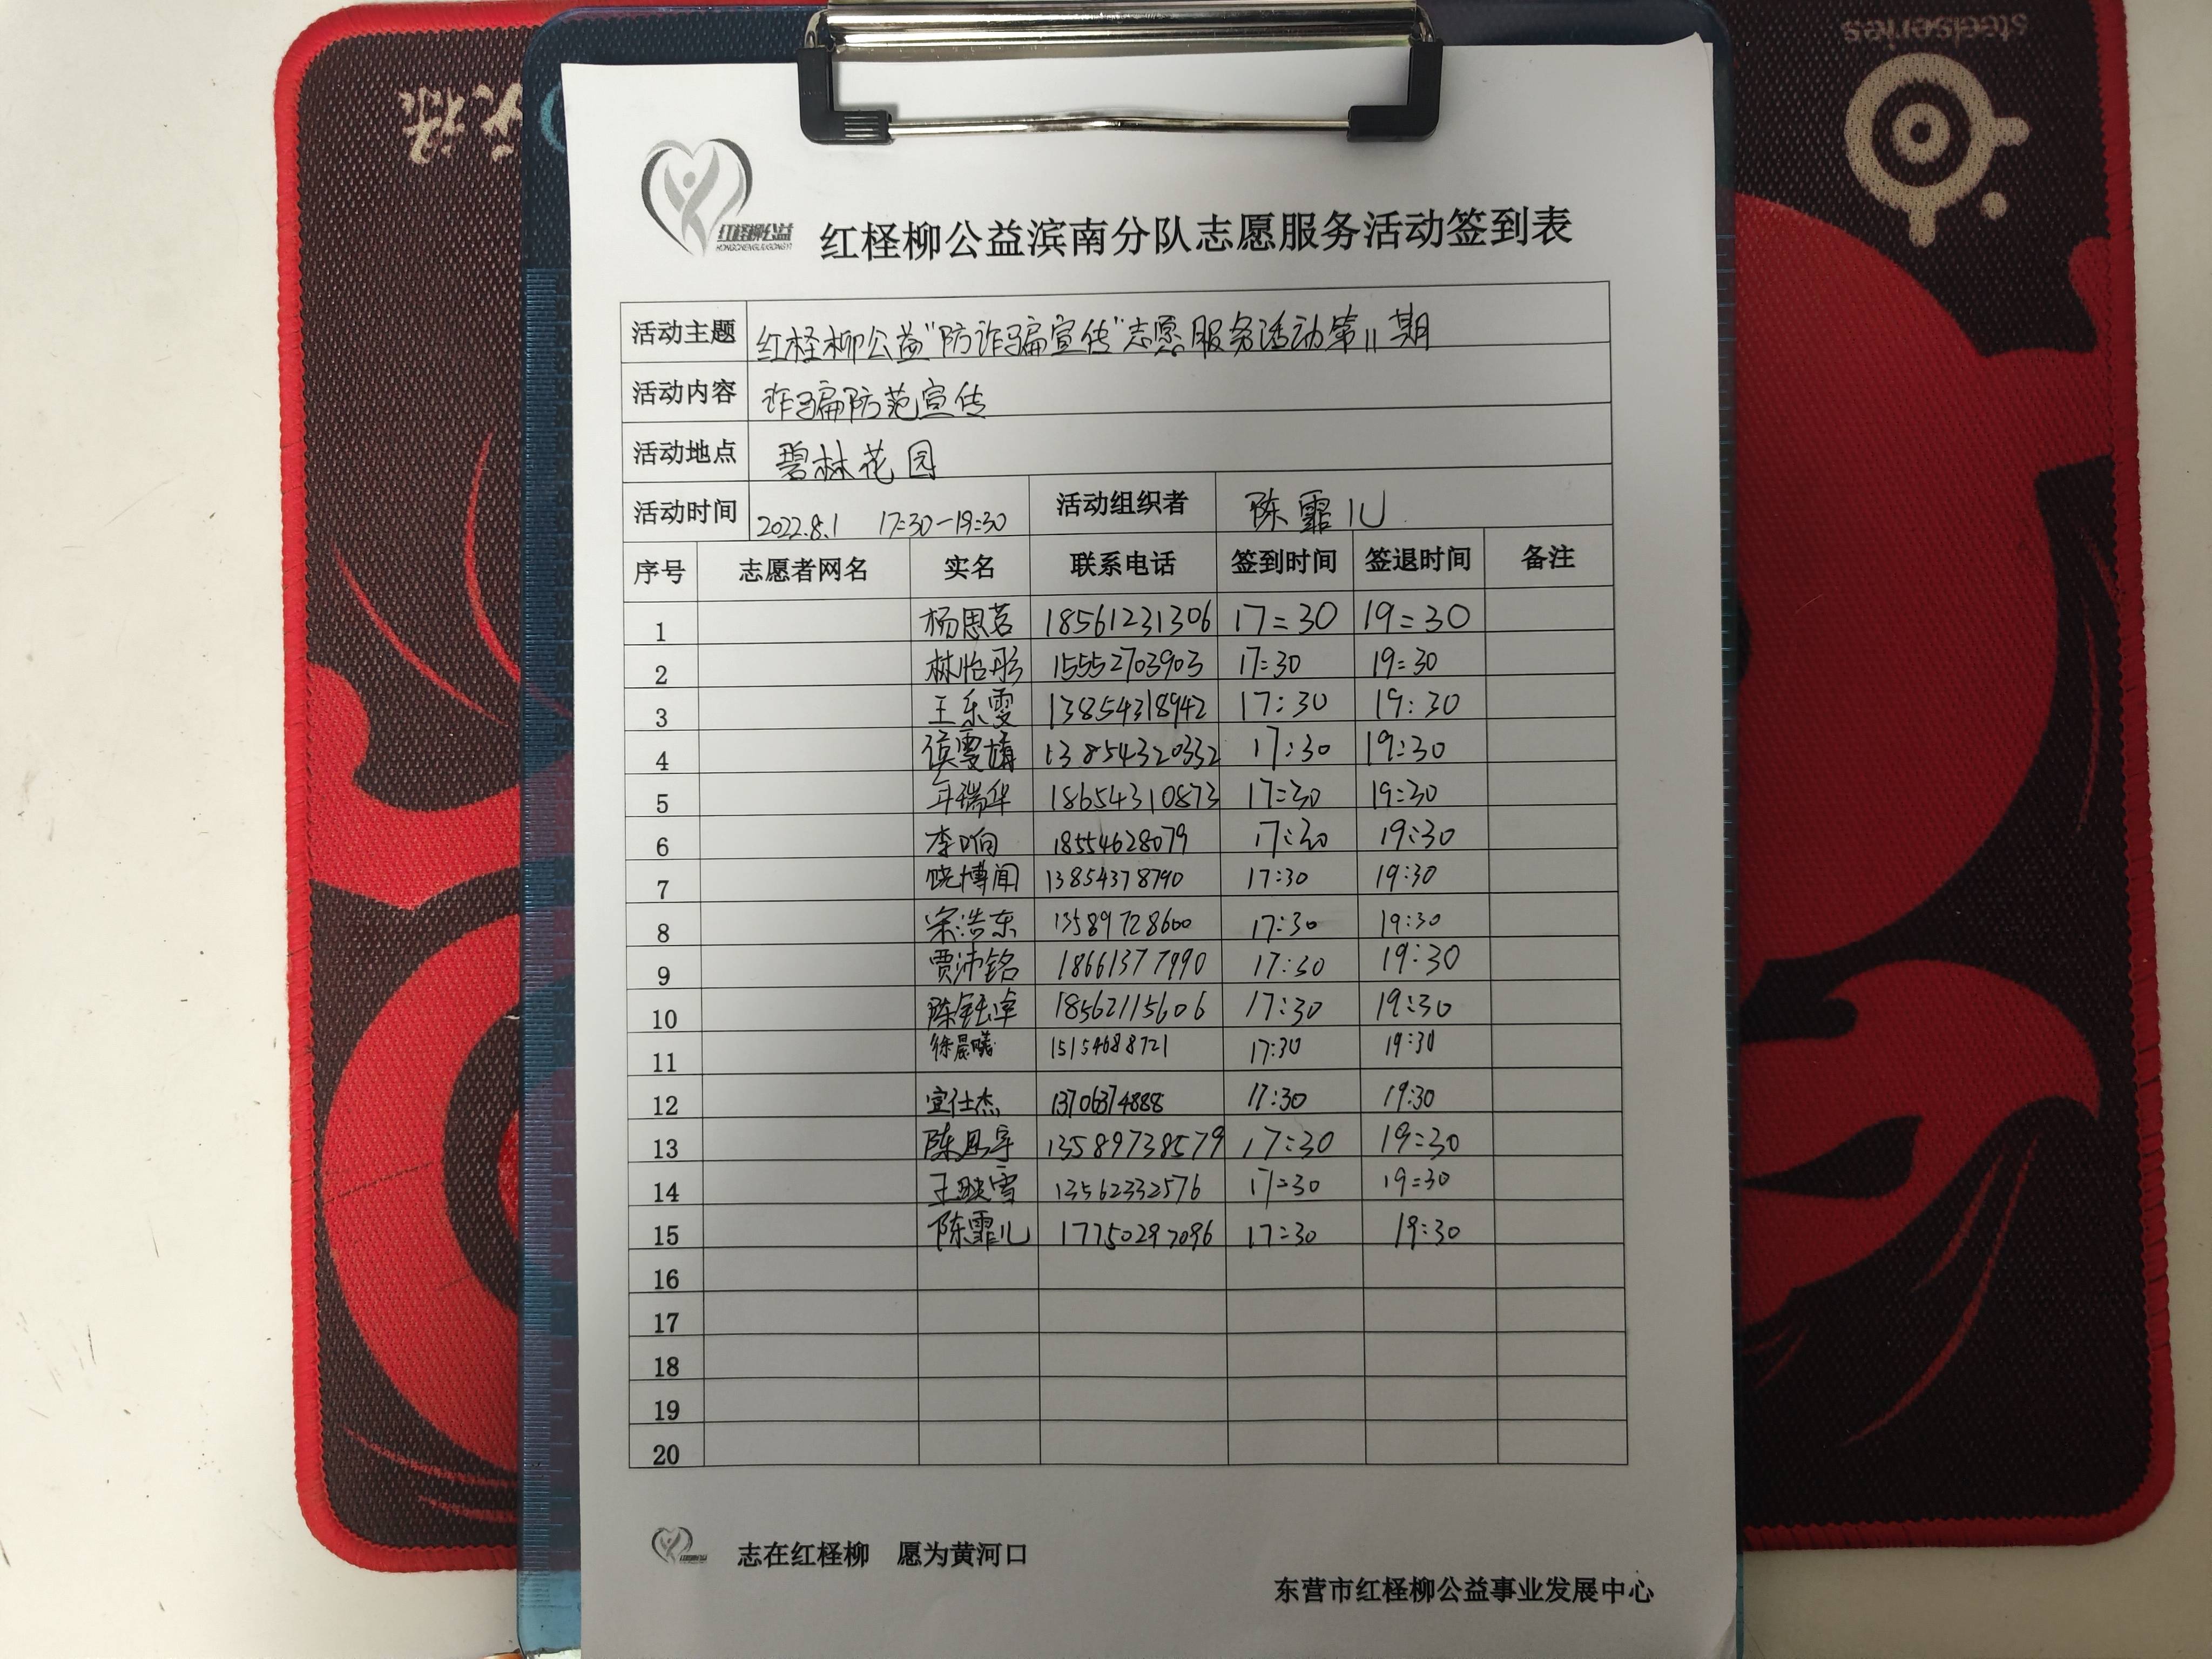 steelseries
红柽柳公益
HONGCHENGLIUGONGYI
红柽柳公益滨南分队志愿服务活动签到表
活动主题 红柽柳公益"防诈骗宣传"志愿服务活动第11期
活动内容 诈骗防范宣传
活动地点 碧林花园
活动时间 2022.8.1 17:30-19:30 活动组织者 陈霏儿
序号 志愿者网名 实名 联系电话 签到时间 签退时间 备注
1 杨思茗 18561231306 17:30 19:30
2 林怡彤 15552703903 17:30 19:30
3 王乐雯 13854318942 17:30 19:30
4 侯雯婧 13854320332 17:30 19:30
5 年瑞华 18654310873 17:30 19:30
6 李响 18554628079 17:30 19:30
7 饶博闻 13854378790 17:30 19:30
8 宋浩东 13589728600 17:30 19:30
9 贾沛铭 18661377990 17:30 19:30
10 陈钰卓 18562115606 17:30 19:30
11 徐晨曦 15154688721 17:30 19:30
12 宣仕杰 13706374888 17:30 19:30
13 陈思宇 13589738579 17:30 19:30
14 王映雪 13562332576 17:30 19:30
15 陈霏儿 17750297096 17:30 19:30
16
17
18
19
20
志在红柽柳 愿为黄河口
东营市红柽柳公益事业发展中心